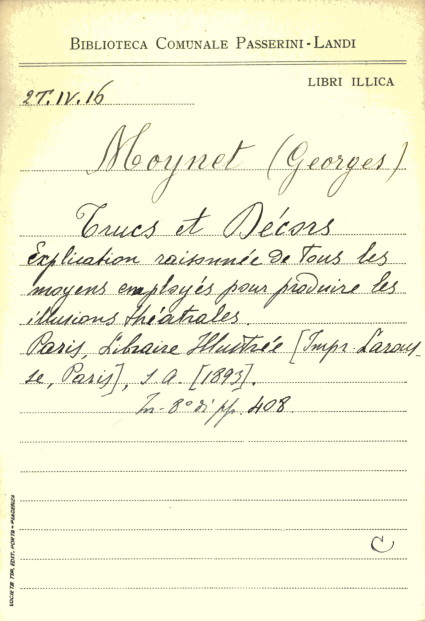 BIBLIOTECA COMUNALE PASSERINI-LANDI
LIBRI ILLICA
2T.IV.16
Moynet (Georges)
Trucs et Décors
Explication raisonnée de Tous les
moyens employés pour produire les
illusions théâtrales.
Paris, Libraire Illustrée [Impr. Larous-
se, Paris], s.a. [1893].
In-8° di pp. 408
C
SOCIETÀ TIP. EDIT. PORTA-PIACENZA